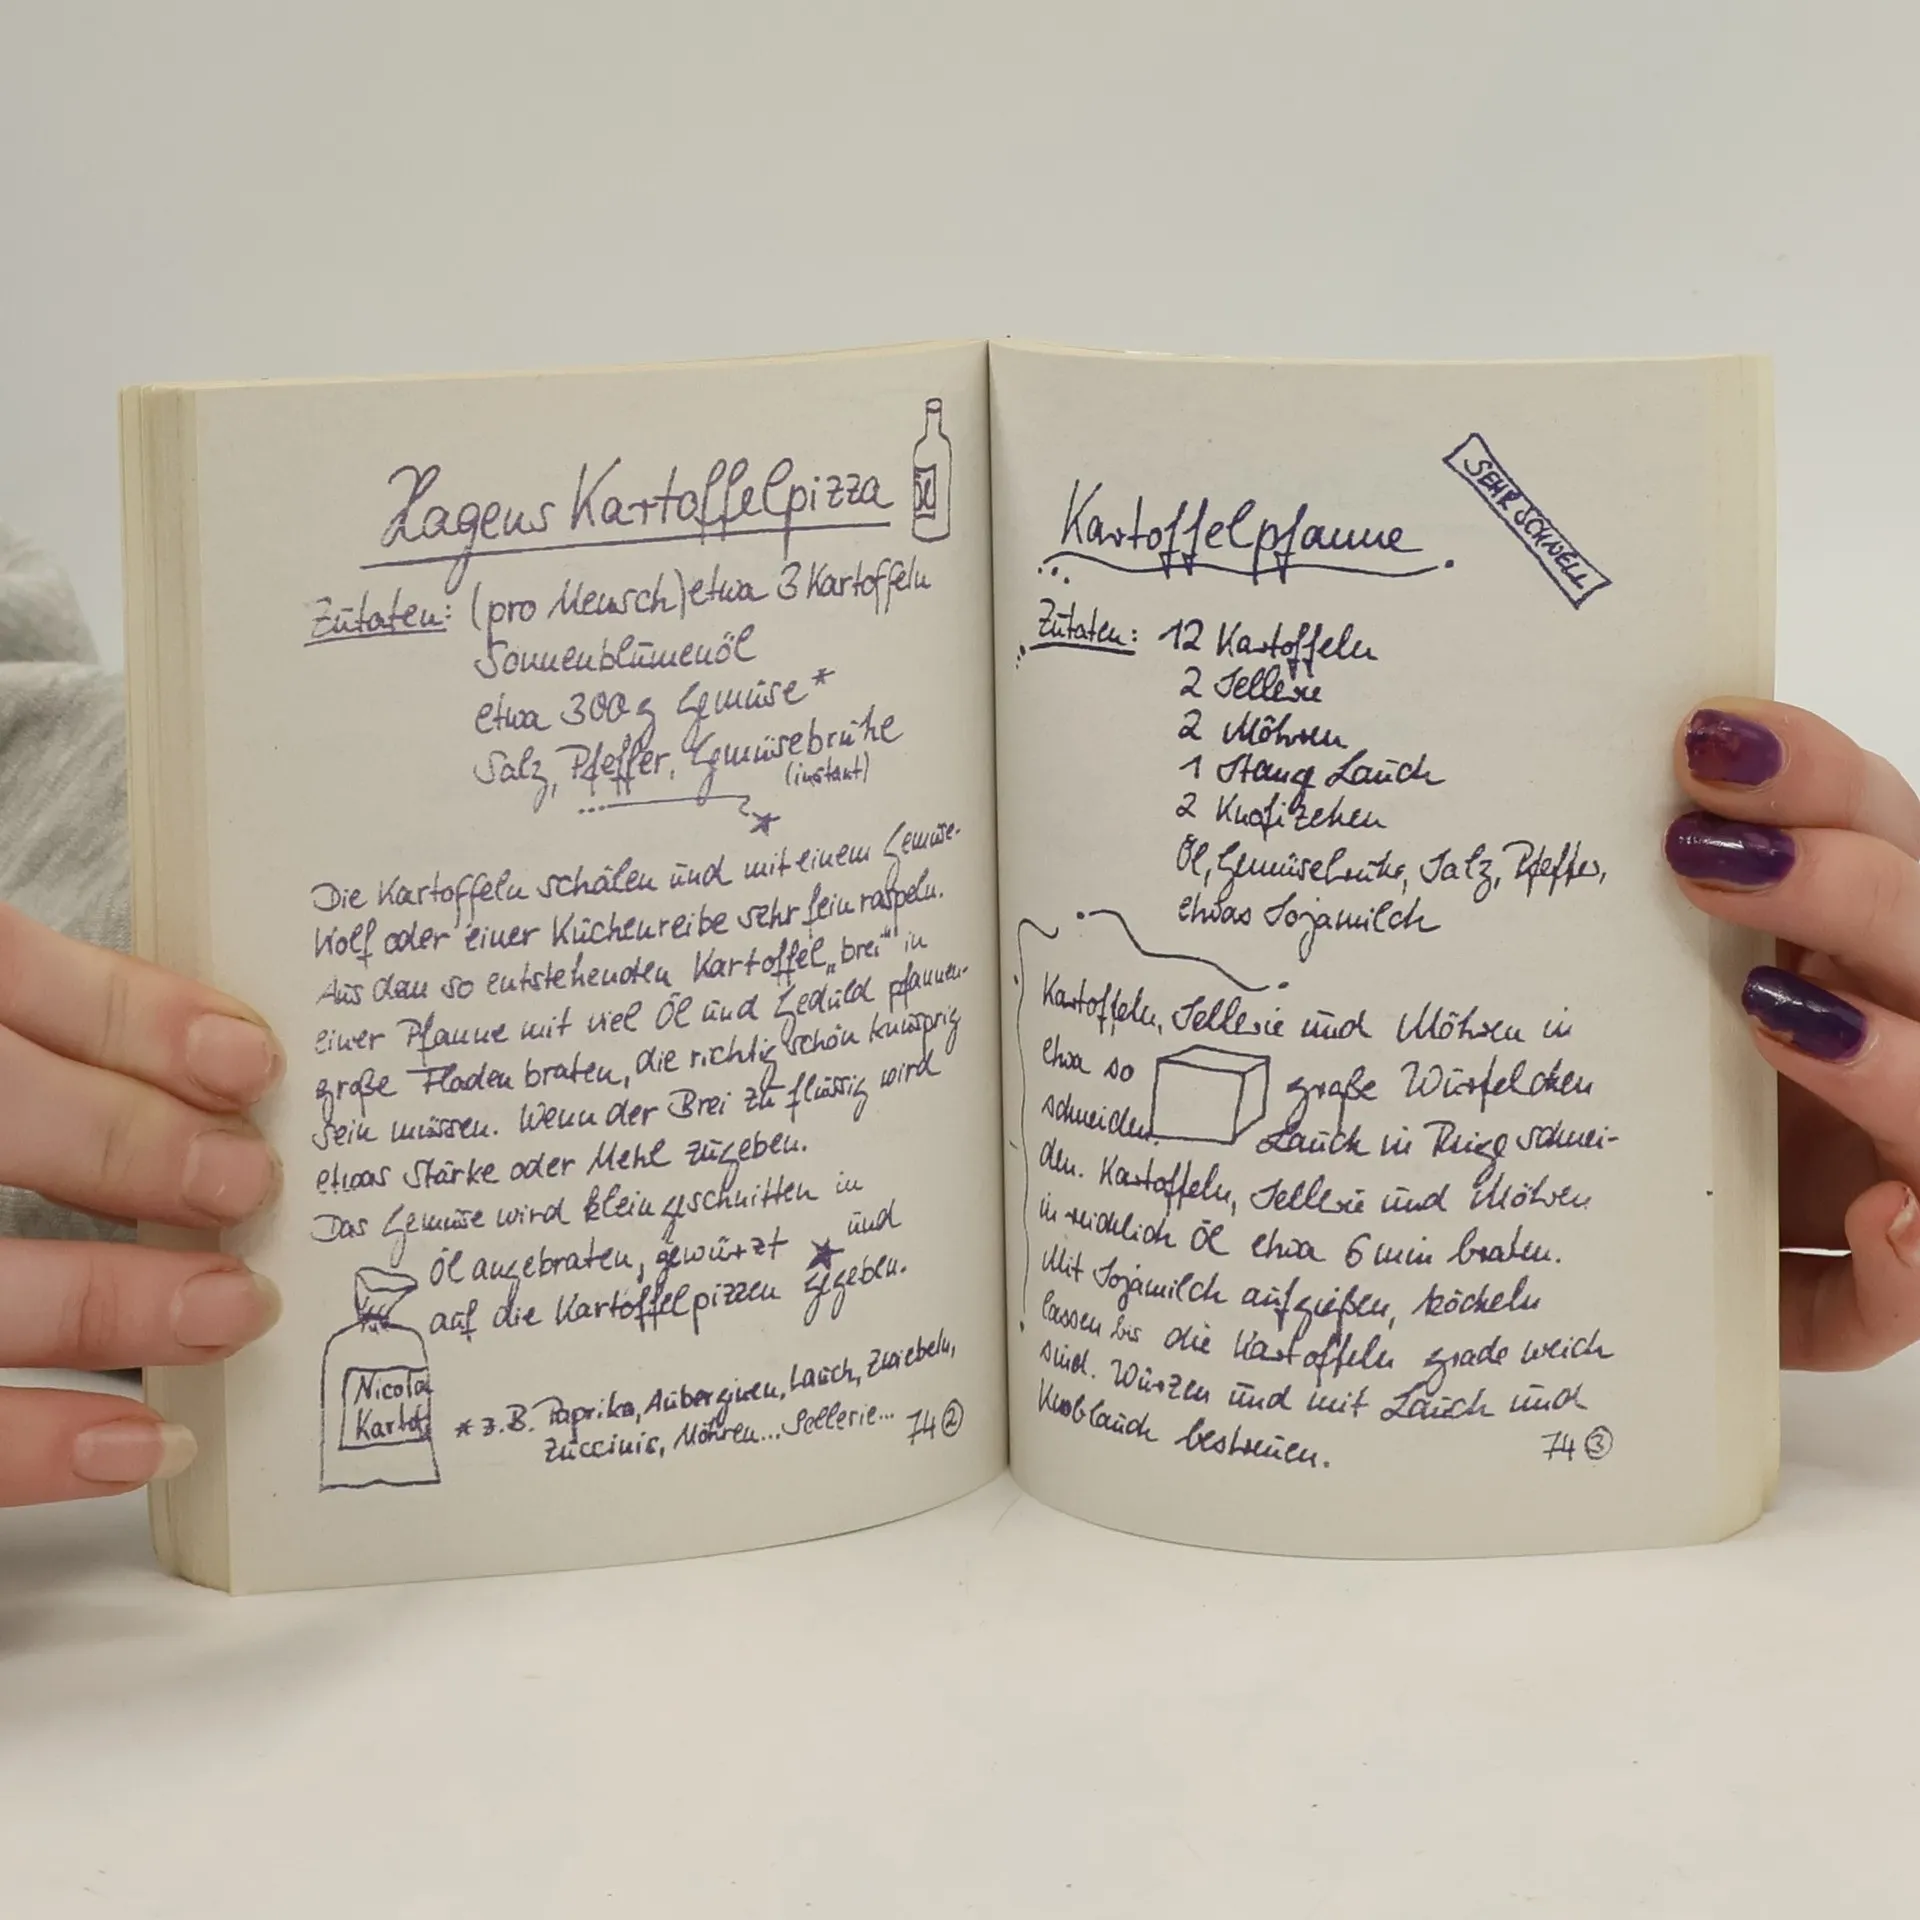 Hagens Kartoffelpizza
Öl
Zutaten: (pro Mensch) etwa 3 Kartoffeln
Sonnenblumenöl
etwa 300 g Gemüse*
Salz, Pfeffer, Gemüsebrühe
(instant)
Die Kartoffeln schälen und mit einem Gemüse-
Wolf oder einer Küchenreibe sehr fein raspeln.
Aus dem so entstehenden Kartoffel„brei“ in
einer Pfanne mit viel Öl und Geduld pfannen-
große Fladen braten, die richtig schön knusprig
sein müssen. Wenn der Brei zu flüssig wird
etwas Stärke oder Mehl zugeben.
Das Gemüse wird kleingeschnitten in
Öl angebraten, gewürzt und
auf die Kartoffelpizzen gegeben.
Nicola
Kartof
* z.B. Paprika, Auberginen, Lauch, Zwiebeln,
Zuccinis, Möhren... Sellerie...
74 ②
SEHR SCHNELL
Kartoffelpfanne
Zutaten: 12 Kartoffeln
2 Sellerie
2 Möhren
1 Stange Lauch
2 Knofizehen
Öl, Gemüsebrühe, Salz, Pfeffer,
etwas Sojamilch
Kartoffeln, Sellerie und Möhren in
etwa so große Würfelchen
schneiden. Lauch in Ringe schnei-
den. Kartoffeln, Sellerie und Möhren
in reichlich Öl etwa 6 min braten.
Mit Sojamilch aufgießen, köcheln
lassen bis die Kartoffeln grade weich
sind. Würzen und mit Lauch und
Knoblauch bestreuen.
74 ③